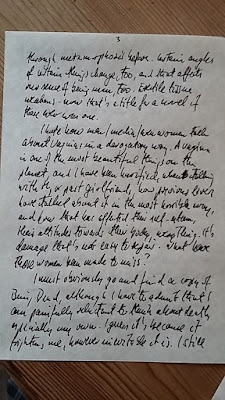 3
through metamorphosis before. Certain angles
of certain things change, too, and that affects
our sense of being men, too. Erectile tissue
now that's a title for a novel if
there ever was one.
I hate how men / media / even women talk
about vaginas in a derogatory way. A vagina
is one of the most beautiful things on the
planet, and I have been horrified, when talking
with my past girlfriends, how previous lovers
have talked about it in the most horrible way,
and how that has affected their self-esteem,
their attitudes towards their bodies, everything. It's
damage that's not easy to repair. What have
those women been made to miss?
I must obviously go and find a copy of
Being Dead, although I have to admit that I
am painfully reluctant to think about death,
especially my own. I guess it's because it
frightens me, however inevitable it is. I still